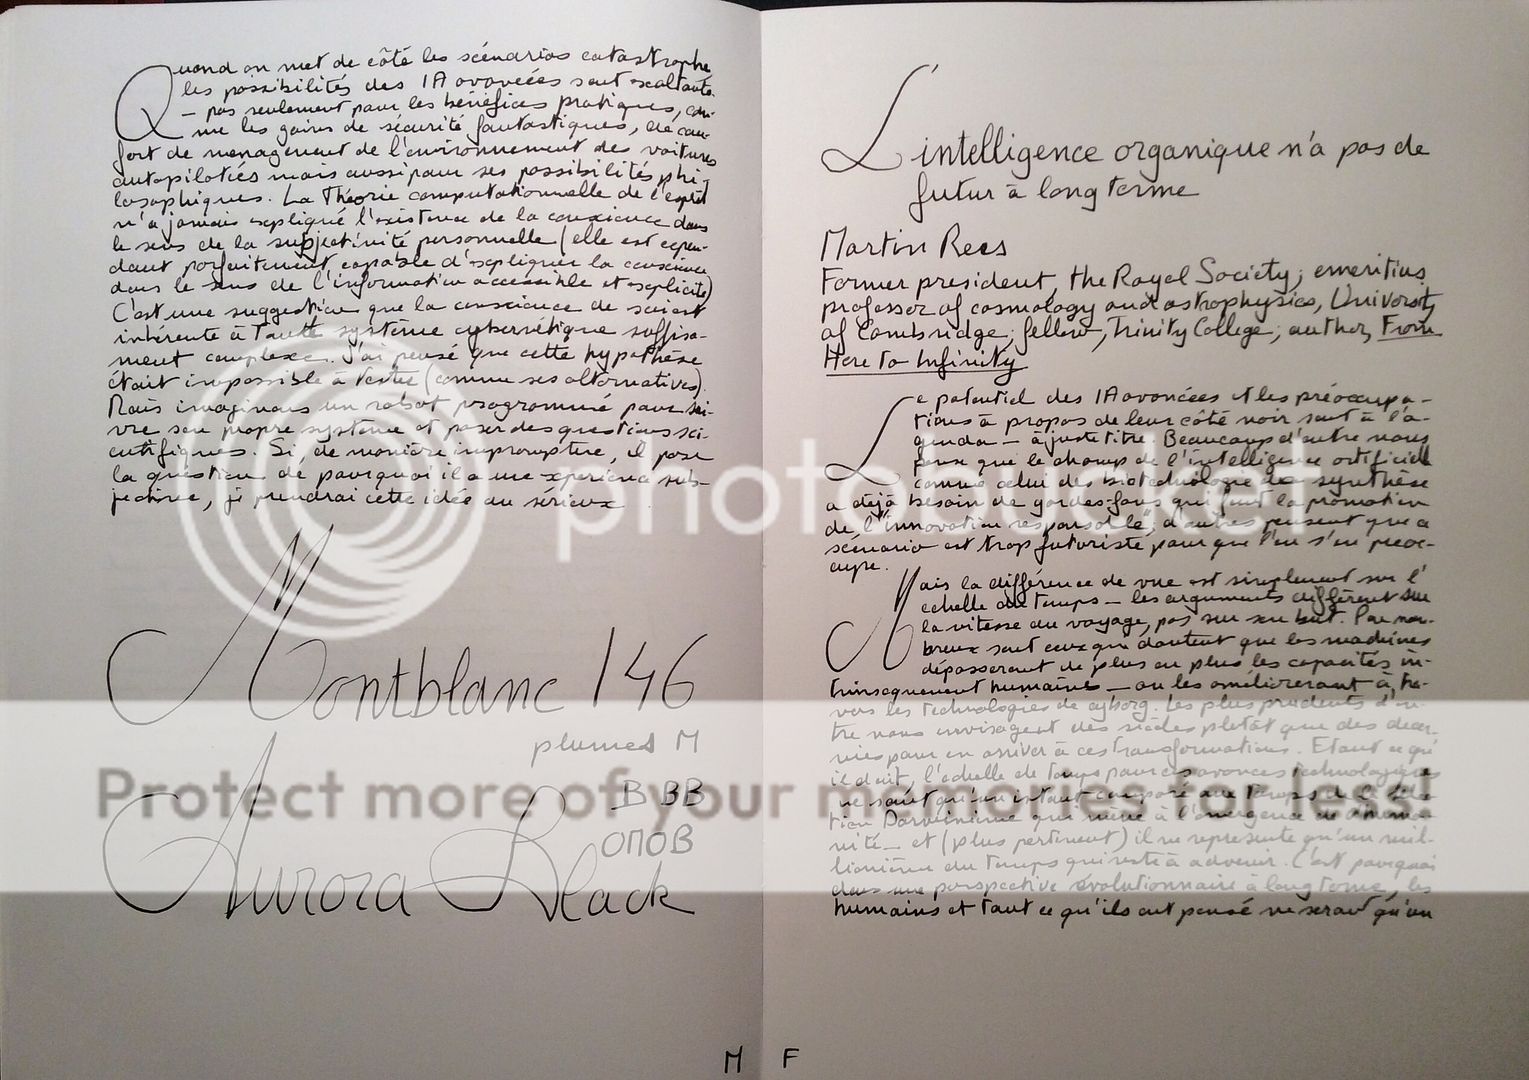 Quand on met de côté les scénarios catastrophe
les possibilités des IA avancées sont exaltantes
— pas seulement pour les bénéfices pratiques, com-
me les gains de sécurité fantastiques, de con-
fort de management de l'environnement des voitures
autopilotées mais aussi pour ses possibilités phi-
losophiques. La Théorie computationnelle de l'esprit
n'a jamais expliqué l'existence de la conscience dans
le sens de la subjectivité personnelle (elle est cepen-
dant parfaitement capable d'expliquer la conscience
dans le sens de l'information accessible et explicite)
C'est une suggestion que la conscience de soi est
inhérente à toute système cybernétique suffisa-
ment complexe. J'ai pensé que cette hypothèse
était impossible à tester (comme ses alternatives).
Mais imaginons un robot programmé pour sui-
vre son propre système et poser des questions sci-
entifiques. Si, de manière impromptue, il pose
la question de pourquoi il a une expérience sub-
jective, je prendrai cette idée au sérieux
Montblanc 146
plumes M
B BB
OMOB
Aurora Black
M
L'intelligence organique n'a pas de
futur à long terme
Martin Rees
Former president, the Royal Society; emeritius
professor of cosmology and astrophysics, University
of Cambridge; fellow, Trinity College; author, From
Here to Infinity
Le potentiel des IA avancées et les préoccupa-
tions à propos de leur côté noir sont à l'a-
genda — à juste titre. Beaucoup d'entre nous
pense que le champ de l'intelligence artificielle
comme celui des biotechnologie de synthèse
a déjà besoin de gardes-fous qui font la promotion
de "l'innovation responsable"; d'autres pensent que ce
scénario est trop futuriste pour que l'on s'en préoc-
cupe.
Mais la différence de vue est simplement sur l'
échelle du temps — les arguments diffèrent sur
la vitesse du voyage, pas sur son but. Peu nom-
breux sont ceux qui doutent que les machines
dépasseront de plus en plus les capacités in-
trinsequement humaines — ou les amélioreront à tra-
vers les technologies de cyborg. Les plus prudents d'en-
tre nous envisagent des siècles plutôt que des décen-
nies pour en arriver à ces transformations. Etant ce qu'
il doit, l'échelle de temps pour ces avancées technologiques
ne sont qu'un instant comparé aux temps de l'évolu-
tion Darwinienne qui mène à l'émergence de l'huma-
nité — et (plus pertinent) il ne représente qu'un mil-
lionième du temps qui reste à advenir. C'est pourquoi
dans une perspective évolutionnaire à long terme, les
humains et tout ce qu'ils ont pensé ne seront qu'un
F
photobucket
Protect more of your memories for less!